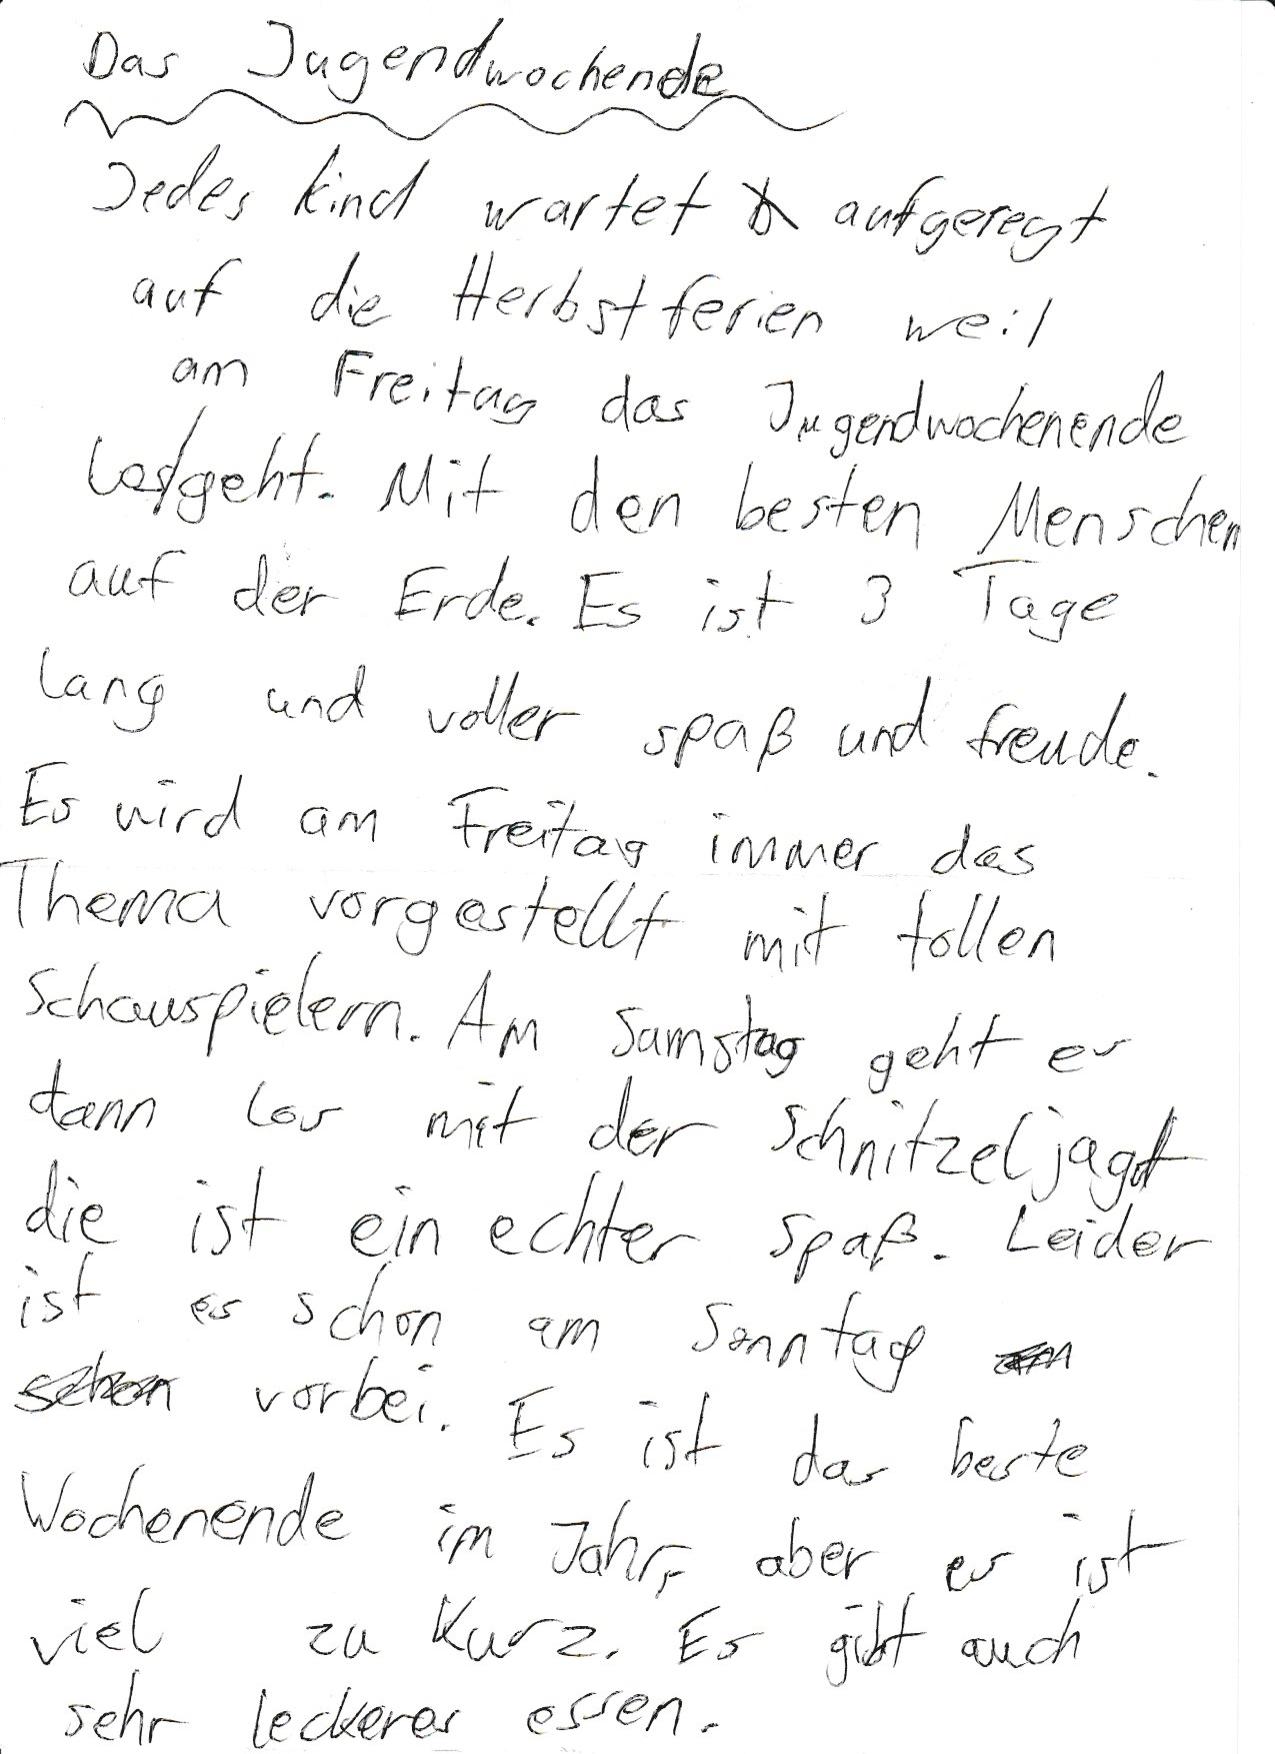 Das Jugendwochende
Jedes kind wartet aufgeregt
auf die Herbstferien weil
am Freitag das Jugendwochenende
Los/geht. Mit den besten Menschen
auf der Erde. Es ist 3 Tage
lang und voller spaß und freude.
Es wird am Freitag immer das
Thema vorgestellt mit tollen
Schauspielern. Am Samstag geht es
dann los mit der Schnitzeljagd
die ist ein echter Spaß. Leider
ist es schon am Sonntag
vorbei. Es ist das beste
Wochenende im Jahr, aber es ist
viel zu Kurz. Es gibt auch
sehr leckeres essen.